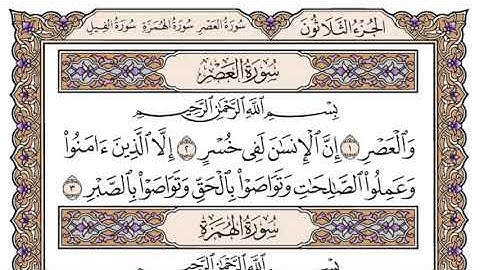 الجزء الثلاثون سورة العصر سورة الهمزة سورة الفيل
سُورَةُ الْعَصْرِ
بِسْمِ ٱللَّهِ ٱلرَّحْمَٰنِ ٱلرَّحِيمِ
وَٱلْعَصْرِ ١ إِنَّ ٱلْإِنسَٰنَ لَفِى خُسْرٍ ٢ إِلَّا ٱلَّذِينَ ءَامَنُوا۟
وَعَمِلُوا۟ ٱلصَّٰلِحَٰتِ وَتَوَاصَوْا۟ بِٱلْحَقِّ وَتَوَاصَوْا۟ بِٱلصَّبْرِ ٣
سُورَةُ الْهُمَزَةِ
بِسْمِ ٱللَّهِ ٱلرَّحْمَٰنِ ٱلرَّحِيمِ